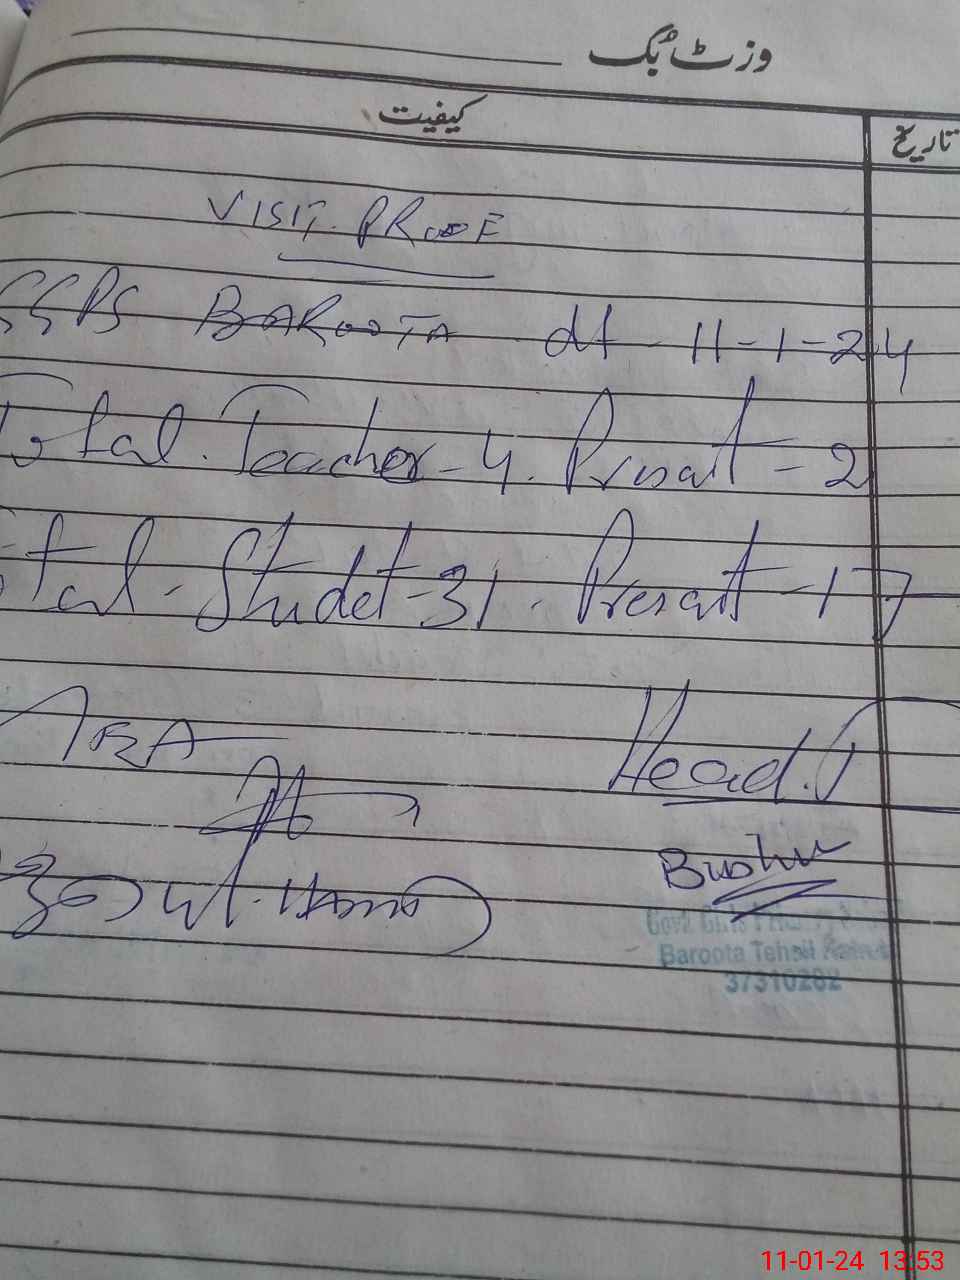 وزٹ بُک
کیفیت
تاریخ
VISIT. PROOF
GGPS BAROOTA dt - 11-1-24
Total. Teacher - 4. Present = 2
Total - Studet - 31. Present - 17
Head. T
Bushra
Govt Girls Primary
Baroota Tehsil
37310202
11-01-24 13:53